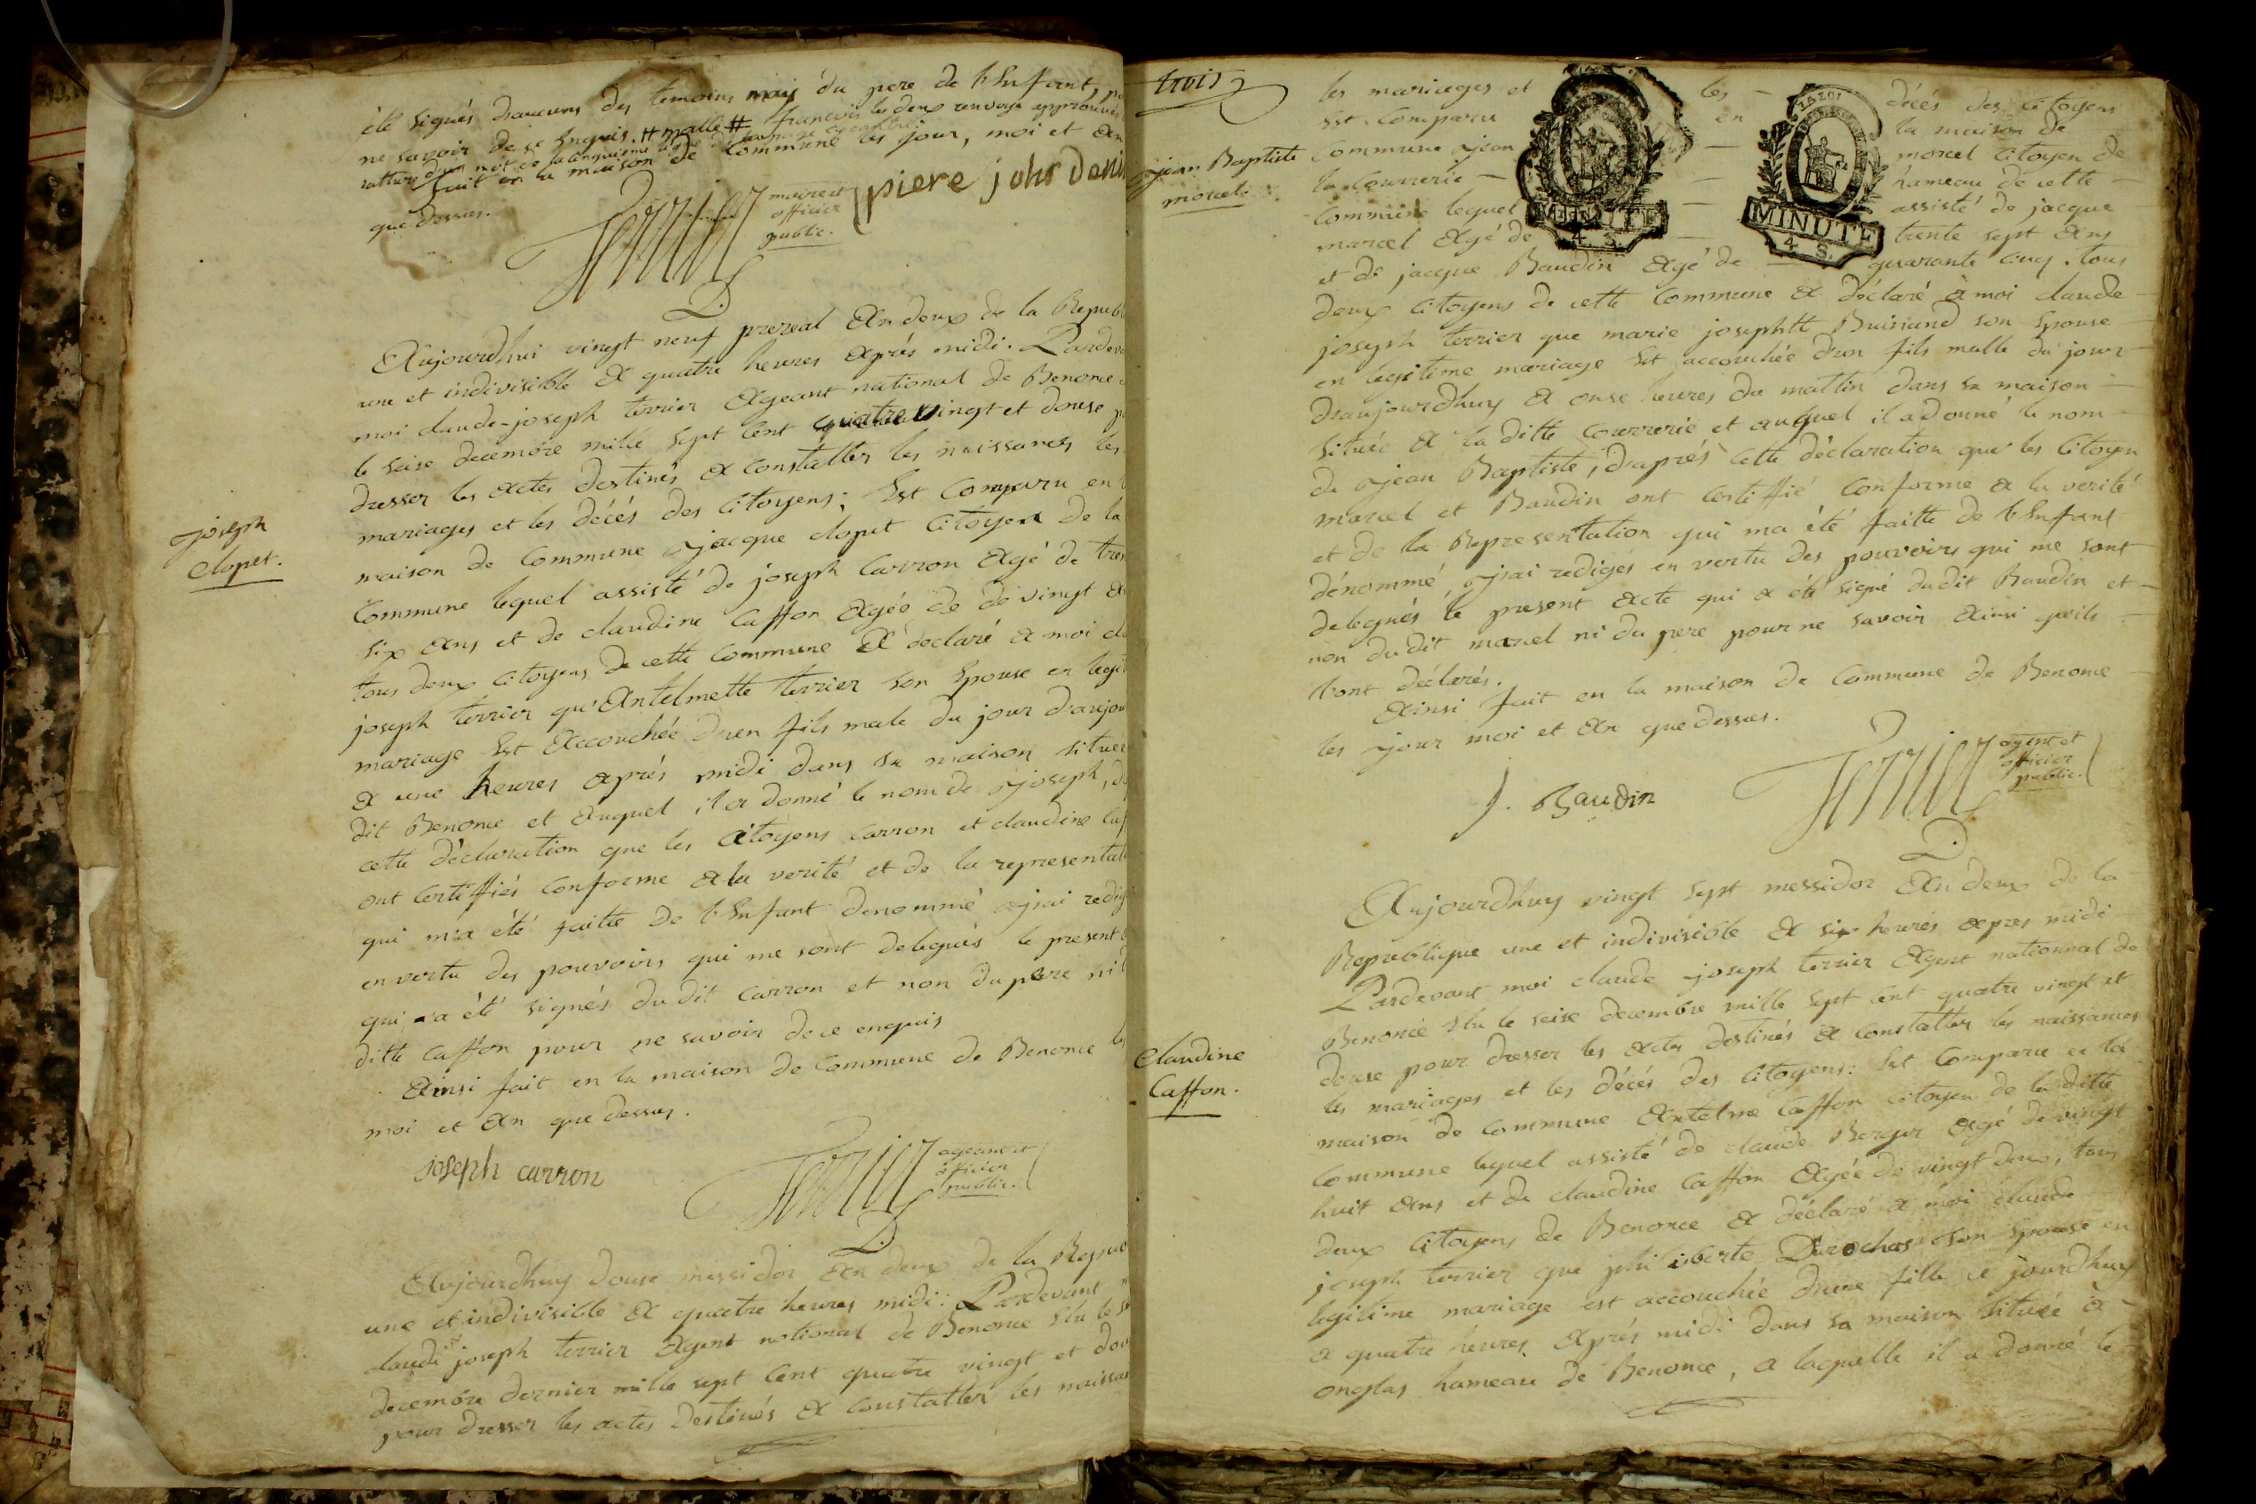 été signés d'aucuns des temoins mais du pere de l'Enfant,
ne savoir de ce Enquis. # malle # francois les deux renvoys approuvés
fait en la maison de commune les jour, moi et an
que dessus.
Terrier maire et officier public.
piere johr deni
Aujourdhui vingt neuf prereal An deux de la Republ
une et indivisible a quatre heures après midi. Pardev
moi claude-joseph terrier ageant national de Benonce
le seise decembre mille sept cent quatre vingt et douse
dresser les actes destinés a constatter les naissances les
mariages et les décés des citoyens; Est comparu en
maison de commune jacque clopet citoyen de la
joseph
clopet.
commune lequel assisté de joseph Carron agé de tren
six ans et de claudine Caffon agée de de vingt
tous deux citoyens de cette commune a declaré a moi
joseph terrier qu'Antelmette terrier son Epouse en legi
mariage Est Accouchée d'uen fils male du jour d'aujou
a une heures après midi dans sa maison située
dit Benonce et auquel il a donné le nom de joseph,
cette déclaration que les citoyens carron et claudine caf
ont certiffiés conforme a la verité et de la representat
qui m'a été faitte de l'Enfant denommé j'ai redig
en vertu des pouvoirs qui me sont delegués le present
qui a été signés du dit carron et non du pere ni
ditte Caffon pour ne savoir de ce enquis
Ainsi fait en la maison de commune de Benonce les
moi et an que dessus.
joseph carron
Terrier ageant et officier public.
Aujourdhuy douse messidor An deux de la Repub
une et indivisible a quatre heures midi: Pardevant
claude joseph terrier Agent national de Benonce Elu le
decembre dernier mille sept cent quatre vingt et dou
pour dresser les actes destinés a constatter les naissan
trois
les mariages et les décés des citoyens
Est comparu en la maison de
jean Baptiste
morcel.
commune jean morcel citoyen de
la Courrerie hameau de cette
commune lequel assisté de jacque
marcel agé de trente sept ans
MINUTE
4 S.
MINUTE
4 S.
et de jacque Baudin agé de quarante cinq. tous
deux citoyens de cette commune a déclaré a moi claude
joseph terrier que marie josephte Buiriand son Epouse
en legitime mariage Est accouchée d'un fils malle du jour
d'aujourdhuy a onse heures du mattin dans sa maison
située a la ditte Courrerie et auquel il a donné le nom
de jean Baptiste, d'après cette déclaration que les citoyen
morcel et Baudin ont certiffié conforme a la verité
et de la Representation qui ma été faitte de l'Enfant
dénommé j'ai redigés en vertu des pouvoirs qui me sont
delegués le present acte qui a été signé dudit Baudin et
non du dit morcel ni du pere pour ne savoir ainsi qu'ils
l'ont déclarés.
Ainsi fait en la maison de commune de Benonce
les jour moi et an que dessus.
j. Baudin
Terrier agent et officier public.
Aujourdhuy vingt sept messidor An deux de la
Republique une et indivisible a six heures apres midi
Pardevant moi claude joseph terrier Agent nationnal de
Benonce Elu le seise decembre mille sept cent quatre vingt et
douse pour dresser les actes destinés a constatter les naissances
les mariages et les décés des citoyens: Est comparu en la
Claudine
Caffon.
maison de commune Antelme Caffon citoyen de la ditte
commune lequel assisté de claude Berger agé de vingt
huit ans et de claudine Caffon agée de vingt deux, tous
deux citoyens de Benonce a déclaré a moi claude
joseph terrier que philiberte Durochas son Epouse en
legitime mariage est accouchée d'une fille ce jourdhuy
a quatre heures après midi dans sa maison située à
onglas hameau de Benonce, a laquelle il a donné le